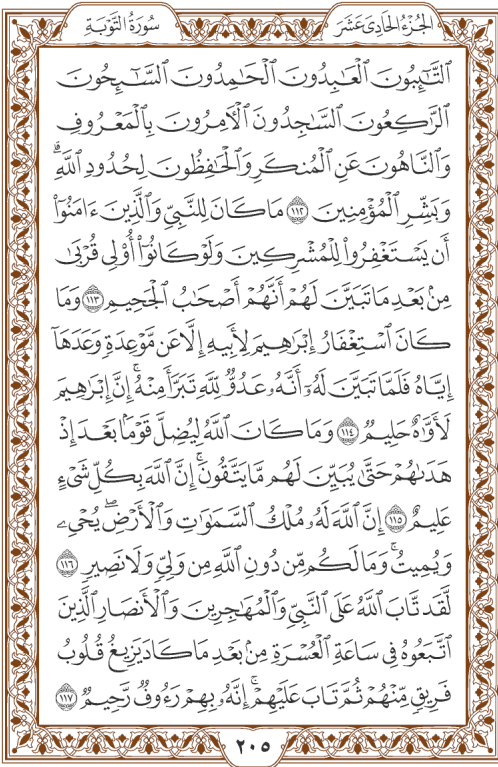 الجُزْءُ الحَادِىَ عَشَرَ
سُورَةُ التَّوْبَةِ
ٱلتَّـٰٓئِبُونَ ٱلْعَـٰبِدُونَ ٱلْحَـٰمِدُونَ ٱلسَّـٰٓئِحُونَ
ٱلرَّٰكِعُونَ ٱلسَّـٰجِدُونَ ٱلْـَٔامِرُونَ بِٱلْمَعْرُوفِ
وَٱلنَّاهُونَ عَنِ ٱلْمُنكَرِ وَٱلْحَـٰفِظُونَ لِحُدُودِ ٱللَّهِۗ
وَبَشِّرِ ٱلْمُؤْمِنِينَ ١١٢ مَا كَانَ لِلنَّبِيِّ وَٱلَّذِينَ ءَامَنُوٓا۟
أَن يَسْتَغْفِرُوا۟ لِلْمُشْرِكِينَ وَلَوْ كَانُوٓا۟ أُو۟لِى قُرْبَىٰ
مِنۢ بَعْدِ مَا تَبَيَّنَ لَهُمْ أَنَّهُمْ أَصْحَـٰبُ ٱلْجَحِيمِ ١١٣ وَمَا
كَانَ ٱسْتِغْفَارُ إِبْرَٰهِيمَ لِأَبِيهِ إِلَّا عَن مَّوْعِدَةٍ وَعَدَهَآ
إِيَّاهُ فَلَمَّا تَبَيَّنَ لَهُۥٓ أَنَّهُۥ عَدُوٌّ لِّلَّهِ تَبَرَّأَ مِنْهُۚ إِنَّ إِبْرَٰهِيمَ
لَأَوَّٰهٌ حَلِيمٌ ١١٤ وَمَا كَانَ ٱللَّهُ لِيُضِلَّ قَوْمًۢا بَعْدَ إِذْ
هَدَىٰهُمْ حَتَّىٰ يُبَيِّنَ لَهُم مَّا يَتَّقُونَۚ إِنَّ ٱللَّهَ بِكُلِّ شَىْءٍ
عَلِيمٌ ١١٥ إِنَّ ٱللَّهَ لَهُۥ مُلْكُ ٱلسَّمَـٰوَٰتِ وَٱلْأَرْضِۖ يُحْىِۦ
وَيُمِيتُۚ وَمَا لَكُم مِّن دُونِ ٱللَّهِ مِن وَلِىٍّ وَلَا نَصِيرٍ ١١٦
لَّقَد تَّابَ ٱللَّهُ عَلَى ٱلنَّبِىِّ وَٱلْمُهَـٰجِرِينَ وَٱلْأَنصَارِ ٱلَّذِينَ
ٱتَّبَعُوهُ فِى سَاعَةِ ٱلْعُسْرَةِ مِنۢ بَعْدِ مَا كَادَ يَزِيغُ قُلُوبُ
فَرِيقٍ مِّنْهُمْ ثُمَّ تَابَ عَلَيْهِمْۚ إِنَّهُۥ بِهِمْ رَءُوفٌ رَّحِيمٌ ١١٧
٢٠٥